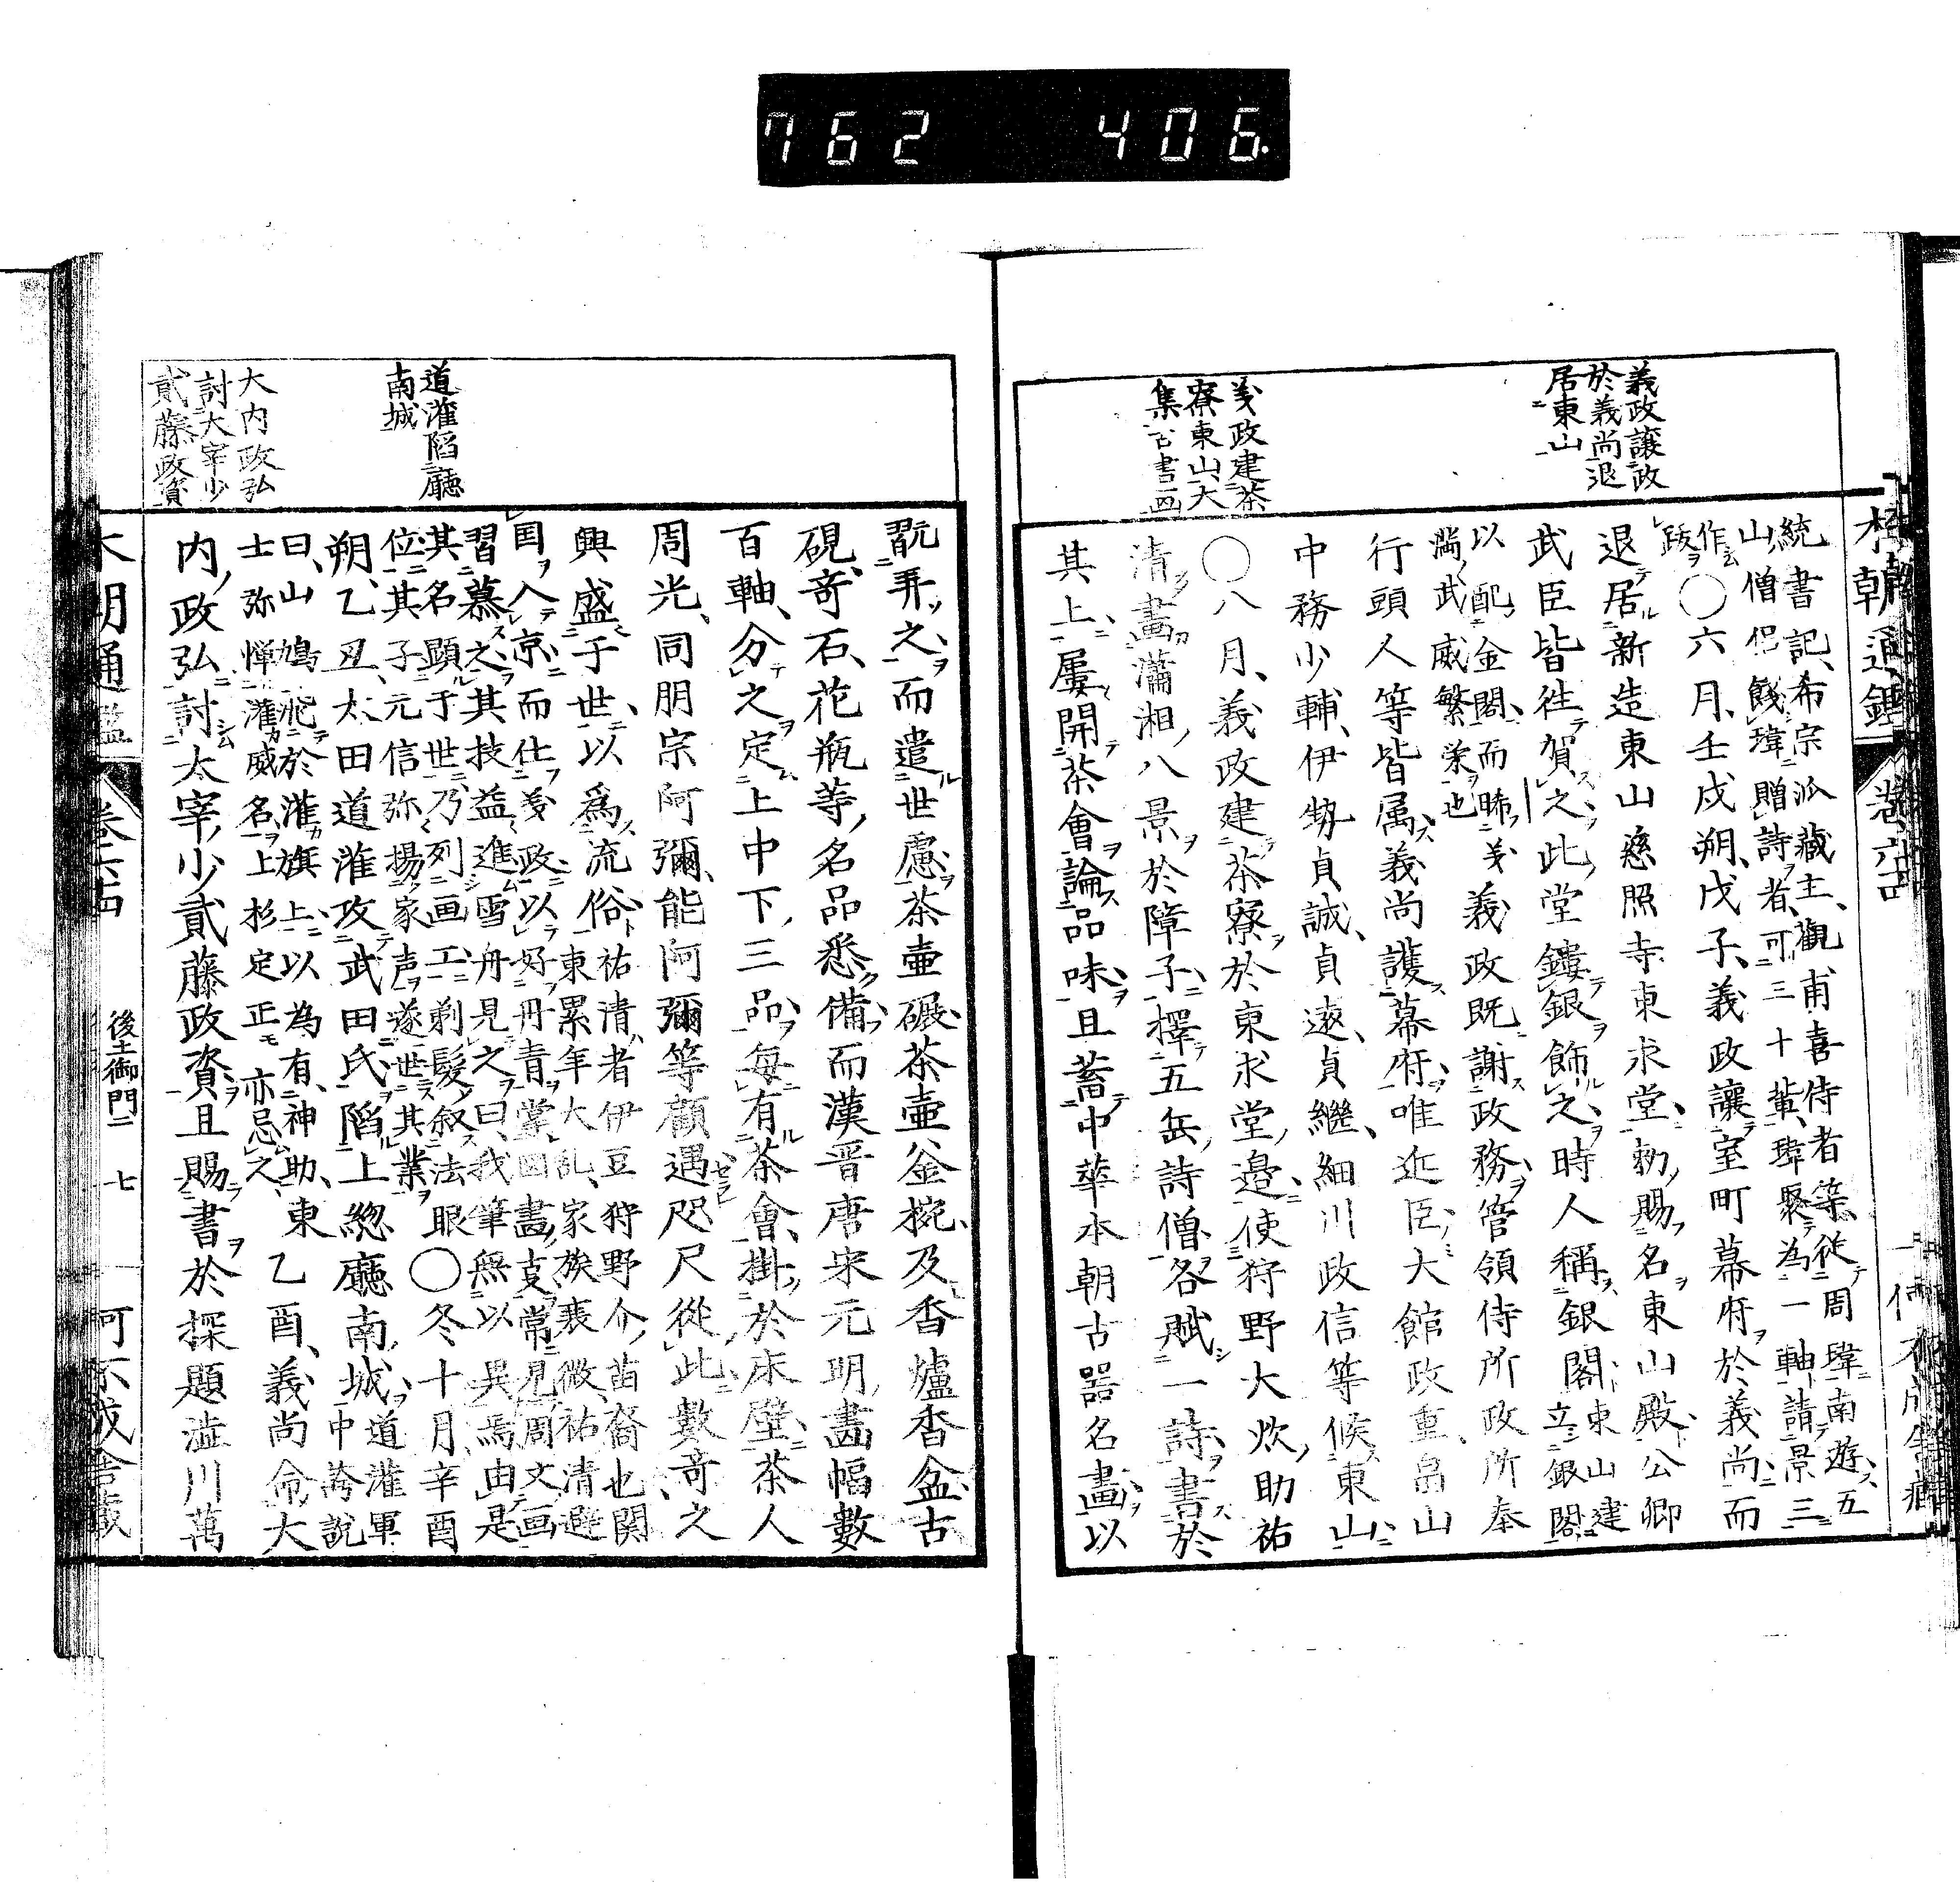 762 406.
義政讓政
於義尚退
居東山
義政建茶
寮東山大
集古書画
統書記、希宗派藏主、觀甫喜侍者等、從周瑋南遊、五
山僧侶餞瑋贈詩者、可三十輩、瑋聚為一軸、請景三
作跋
○六月、壬戌朔、戊子、義政讓室町幕府於義尚、而
退居新造東山慈照寺東求堂、勅賜名東山殿、公卿
武臣皆往賀之、此堂鏤銀飾之、時人稱銀閣、東山建
立銀閣
以配金閣、而睎義
滿武威繁栄也
義政既謝政務、管領侍所政所奉
行頭人等皆属義尚護幕府、唯近臣大館政重、畠山
中務少輔、伊勢貞誠、貞遠、貞繼、細川政信等候東山
○八月、義政建茶寮於東求堂邉、使狩野大炊助祐
清畫瀟湘八景於障子、擇五岳詩僧、各賦一詩、書於
其上、屢開茶會、論品味、且蓄中華本朝古器名畫、以
翫弄之、而遣世慮、茶壷碾茶壷釜椀、及香爐香盆古
硯、奇石、花瓶等、名品悉備、而漢晋唐宋元明畵幅數
百軸、分之定上中下三品、毎有茶會、掛於床壁、茶人
周光、同朋宗阿彌、能阿彌等顧遇咫尺從此數竒之
興盛于世、以爲流俗、祐清者伊豆狩野介苗裔也関
東累年大乱、家族衰微、祐清避
国入京而仕義政、以好丹青嘗図畵支常見周文画
習慕之其技益進雪舟見之曰、我筆無以異焉由是
其名顕于世、乃列画工、剃髪叙法眼
位其子元信弥揚家声遂世其業
○冬十月、辛酉
朔、乙丑、太田道灌攻武田氏、陥上緫廳南城、道灌軍
中誇説
曰、山鳩飛於灌旗上、以為有神助、東
士弥憚灌威名、上杉定正亦忌之、
乙酉、義尚命大
内政弘討太宰少貳藤政資、且賜書於探題澁川萬
道灌陥廳
南城
大内政弘
討大宰少
貳藤政資
後土御門一 七